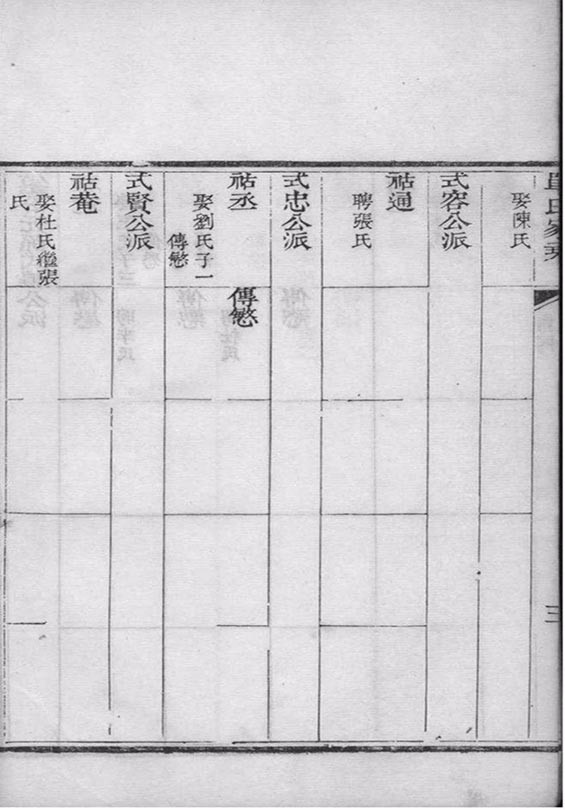 氏家乘
三
娶陳氏
式容公派
祜通
聘張氏
式忠公派
祜丞
傳慜
娶劉氏子一
傳慜
式賢公派
祜菴
娶杜氏繼張
氏